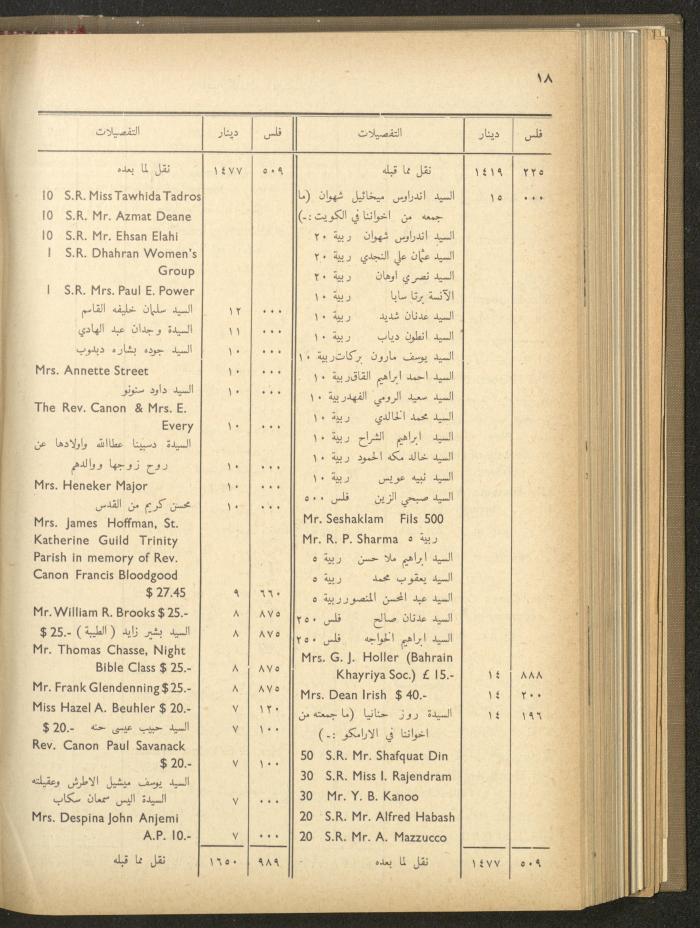 ١٨
فلس دينار التفصيلات
٢٢٥ ١٤١٩ نقل مما قبله
٠٠٠ ١٥ السيد اندراوس ميخائيل شهوان (ما
جمعه من اخواننا في الكويت :ـ)
السيد اندراوس شهوان ربية ٢٠
السيد عثمان علي النجدي ربية ٢٠
السيد نصري اوهان ربية ٢٠
الآنسة برتا سابا ربية ١٠
السيد عدنان شديد ربية ١٠
السيد انطون دياب ربية ١٠
السيد يوسف مارون بركات ربية ١٠
السيد احمد ابراهيم القاق ربية ١٠
السيد سعيد الرومي الفهد ربية ١٠
السيد محمد الخالدي ربية ١٠
السيد ابراهيم الشراح ربية ١٠
السيد خالد مكه الحمود ربية ١٠
السيد نبيه عويس ربية ١٠
السيد صبحي الزين فلس ٥٠٠
Mr. Seshaklam Fils 500
Mr. R. P. Sharma ربية ٥
السيد ابراهيم ملا حسن ربية ٥
السيد يعقوب محمد ربية ٥
السيد عبد المحسن المنصور ربية ٥
السيد عدنان صالح فلس ٢٥٠
السيد ابراهيم الخواجه فلس ٢٥٠
Mrs. G. J. Holler (Bahrain
Khayriya Soc.) £ 15.- ١٤ ٨٨٨
Mrs. Dean Irish $ 40.- ١٤ ٢٠٠
١٩٦ ١٤ السيدة روز حنانيا (ما جمعته من
اخواننا في الارامكو :ـ)
50 S.R. Mr. Shafquat Din
30 S.R. Miss I. Rajendram
30 Mr. Y. B. Kanoo
20 S.R. Mr. Alfred Habash
20 S.R. Mr. A. Mazzucco
٥٠٩ ١٤٧٧ نقل لما بعده
فلس دينار التفصيلات
٥٠٩ ١٤٧٧ نقل لما بعده
10 S.R. Miss Tawhida Tadros
10 S.R. Mr. Azmat Deane
10 S.R. Mr. Ehsan Elahi
1 S.R. Dhahran Women's
Group
1 S.R. Mrs. Paul E. Power
٠٠٠ ١٢ السيد سلمان خليفه القاسم
٠٠٠ ١١ السيدة وجدان عبد الهادي
٠٠٠ ١٠ السيد جوده بشاره دبدوب
Mrs. Annette Street ١٠ ٠٠٠
٠٠٠ ١٠ السيد داود سنونو
The Rev. Canon & Mrs. E.
Every ١٠ ٠٠٠
السيدة دسبينا عطاالله واولادها عن
٠٠٠ ١٠ روح زوجها ووالدهم
Mrs. Heneker Major ١٠ ٠٠٠
٠٠٠ ١٠ محسن كريم من القدس
Mrs. James Hoffman, St.
Katherine Guild Trinity
Parish in memory of Rev.
Canon Francis Bloodgood
$ 27.45 ٩ ٦٦٠
Mr. William R. Brooks $ 25.- ٨ ٨٧٥
٨٧٥ ٨ السيد بشير زايد (الطيبة) $ 25.-
Mr. Thomas Chasse, Night
Bible Class $ 25.- ٨ ٨٧٥
Mr. Frank Glendenning $ 25.- ٨ ٨٧٥
Miss Hazel A. Beuhler $ 20.- ٧ ١٢٠
١٠٠ ٧ السيد حبيب عيسى حنه $ 20.-
Rev. Canon Paul Savanack
$ 20.- ٧ ١٠٠
السيد يوسف ميشيل الاطرش وعقيلته
٠٠٠ ٧ السيدة اليس سمعان سكاب
Mrs. Despina John Anjemi
A.P. 10.- ٧ ٠٠٠
٩٨٩ ١٦٥٠ نقل مما قبله